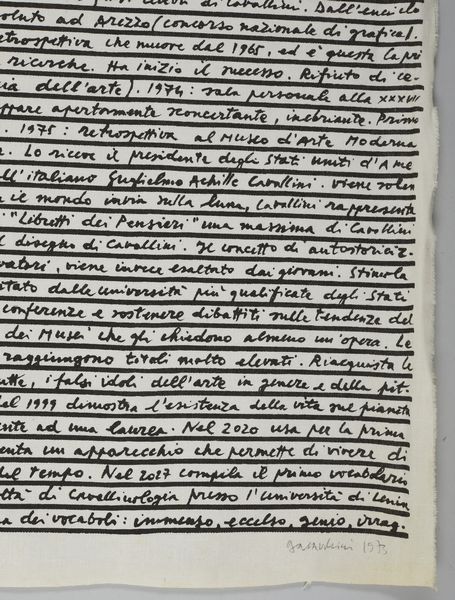 di Cavallini. Dall'enciclo
soluto ad Arezzo (concorso nazionale di grafica).
etrospettiva che muove dal 1965, ed è questa la pri
ricerche. Ha inizio il successo. Rifiuto di ce-
cia dell'arte). 1974: sala personale alla XXXVII
appare apertamente sconcertante, inebriante. Primo
. 1975: retrospettiva al Museo d'Arte Moderna
. Lo riceve il presidente degli Stati Uniti d'Ame
ll'italiano Guglielmo Achille Cavallini. Viene solen
il mondo invia sulla luna, Cavallini rappresenta
. "Libretti dei Pensieri" una massima di Cavallini
l disegno di Cavallini. Il concetto di autostoriciz-
vatori, viene invece esaltato dai giovani. Stimola
itato dalle università più qualificate degli Stati
conferenze e sostenere dibattiti sulle tendenze del
dei Musei che gli chiedono almeno un'opera. Le
raggiungono titoli molto elevati. Riacquista le
utte, i falsi idoli dell'arte in genere e della pit-
del 1999 dimostra l'esistenza della vita sul pianeta
ente ad una laurea. Nel 2020 usa per la prima
enta un apparecchio che permette di vivere di
del tempo. Nel 2027 compila il primo vocabolario
oltà di Cavellinologia presso l'università di Lenin
a dei vocaboli: immenso, eccelso, genio, irrag-
1973